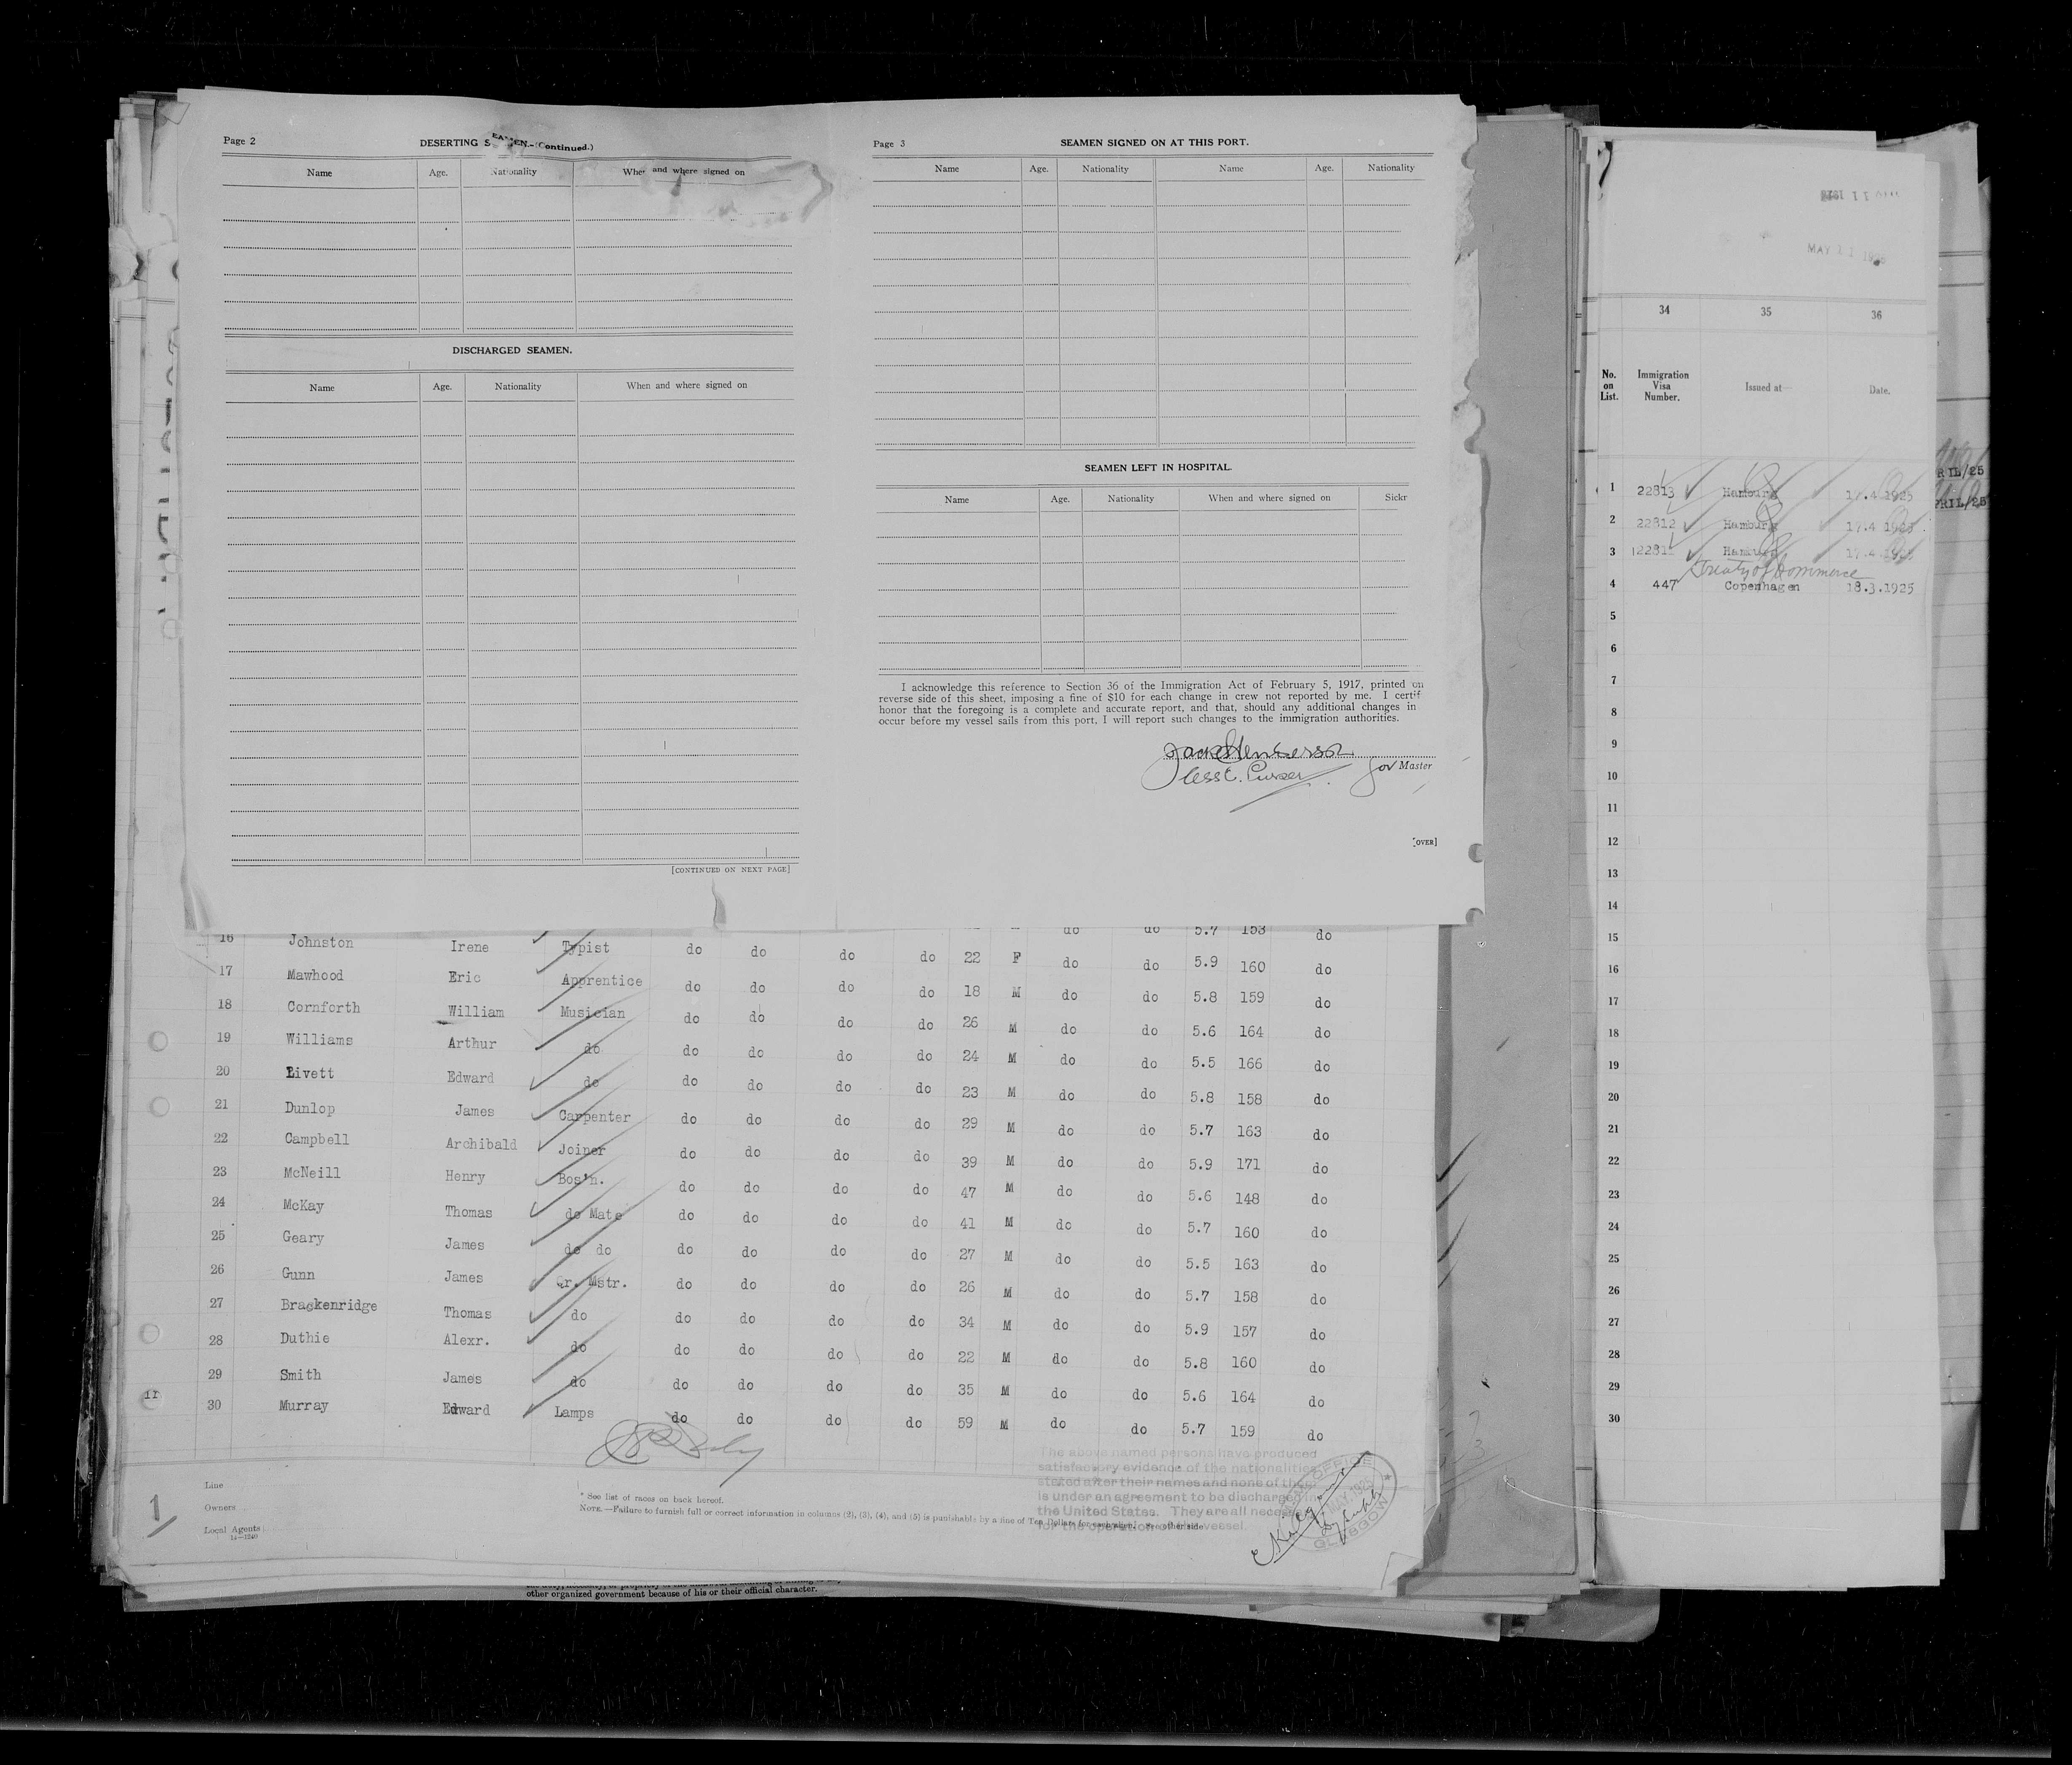 Page 2 DESERTING SEAMEN.-(Continued.)
Name Age. Nationality When and where signed on
DISCHARGED SEAMEN.
Name Age. Nationality When and where signed on
[CONTINUED ON NEXT PAGE]
Page 3 SEAMEN SIGNED ON AT THIS PORT.
Name Age. Nationality Name Age. Nationality
SEAMEN LEFT IN HOSPITAL.
Name Age. Nationality When and where signed on Sickr
I acknowledge this reference to Section 36 of the Immigration Act of February 5, 1917, printed on
reverse side of this sheet, imposing a fine of $10 for each change in crew not reported by me. I certif
honor that the foregoing is a complete and accurate report, and that, should any additional changes in
occur before my vessel sails from this port, I will report such changes to the immigration authorities.
Henderson
Asst. Purser for Master
[OVER]
16 Johnston Irene Typist do do do do 22 F do do 5.9 160 do
17 Mawhood Eric Apprentice do do do do 18 M do do 5.8 159 do
18 Cornforth William Musician do do do do 26 M do do 5.6 164 do
19 Williams Arthur do do do do do 24 M do do 5.5 166 do
20 Livett Edward do do do do do 23 M do do 5.8 158 do
21 Dunlop James Carpenter do do do do 29 M do do 5.7 163 do
22 Campbell Archibald Joiner do do do do 39 M do do 5.9 171 do
23 McNeill Henry Bos'n. do do do do 47 M do do 5.6 148 do
24 McKay Thomas do Mate do do do do 41 M do do 5.7 160 do
25 Geary James do do do do do do 27 M do do 5.5 163 do
26 Gunn James Qr. Mstr. do do do do 26 M do do 5.7 158 do
27 Brackenridge Thomas do do do do do 34 M do do 5.9 157 do
28 Duthie Alexr. do do do do do 22 M do do 5.8 160 do
29 Smith James do do do do do 35 M do do 5.6 164 do
30 Murray Edward Lamps do do do do 59 M do do 5.7 159 do
The above named persons have produced
satisfactory evidence of the nationalities
stated after their names and none of them
is under an agreement to be discharged in
the United States. They are all necess
for the operation of the vessel.
GLASGOW
MAY 1925
1
Line
Owners
Local Agents
14-1240
* See list of races on back hereof.
NOTE.—Failure to furnish full or correct information in columns (2), (3), (4), and (5) is punishable by a fine of Ten Dollars for each alien. See other side
other organized government because of his or their official character.
MAY 11 1925
34 35 36
No. on List. Immigration Visa Number. Issued at Date.
1 22813 Hamburg 17.4.1925
2 22812 Hamburg 17.4.1925
3 22811 Hamburg 17.4.1925
Treaty of Commerce
4 447 Copenhagen 18.3.1925
5
6
7
8
9
10
11
12
13
14
15
16
17
18
19
20
21
22
23
24
25
26
27
28
29
30
RIL/25
PRIL/25